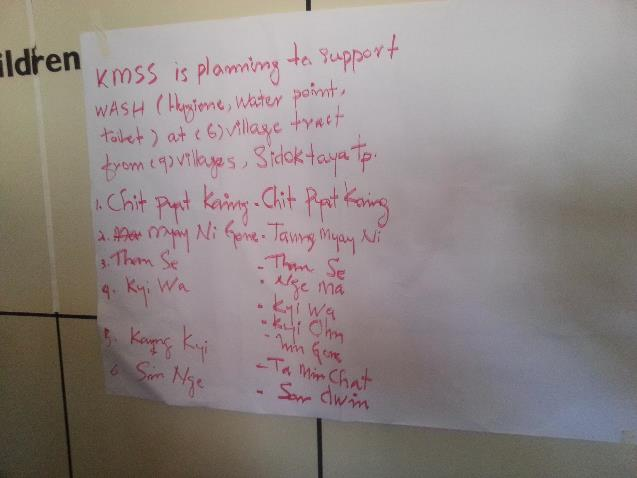 ildren
KMSS is planning to support
WASH (Hygiene, Water point,
toilet) at (6) village tract
from (9) villages, Sidoktaya tp.
1. Chit Pyat Kaing - Chit Pyat Kaing
2. Myay Ni Gone - Taung Myay Ni
3. Thom Se - Thom Se
4. Kyi Wa - Nge Ma
- Kyi Wa
- Kyi Ohn
5. Kaing Kyi - Gone
6. Sin Nge - Ta Min Chat
- San dwin